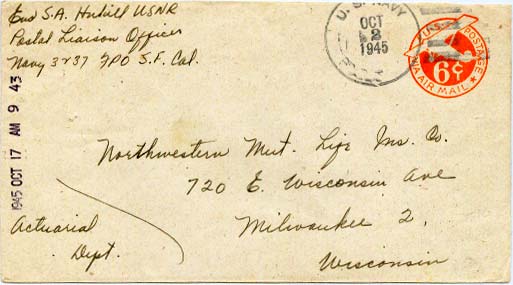 Ens S.A. Hukill USNR
Postal Liaison Officer
Navy 3237 FPO S.F. Cal.
U.S. NAVY
OCT
2
1945
U.S. POSTAGE
6¢
VIA AIR MAIL
1945 OCT 17 AM 9 43
Northwestern Mut. Life Ins. Co.
720 E. Wisconsin Ave
Milwaukee 2,
Wisconsin
Actuarial
Dept.